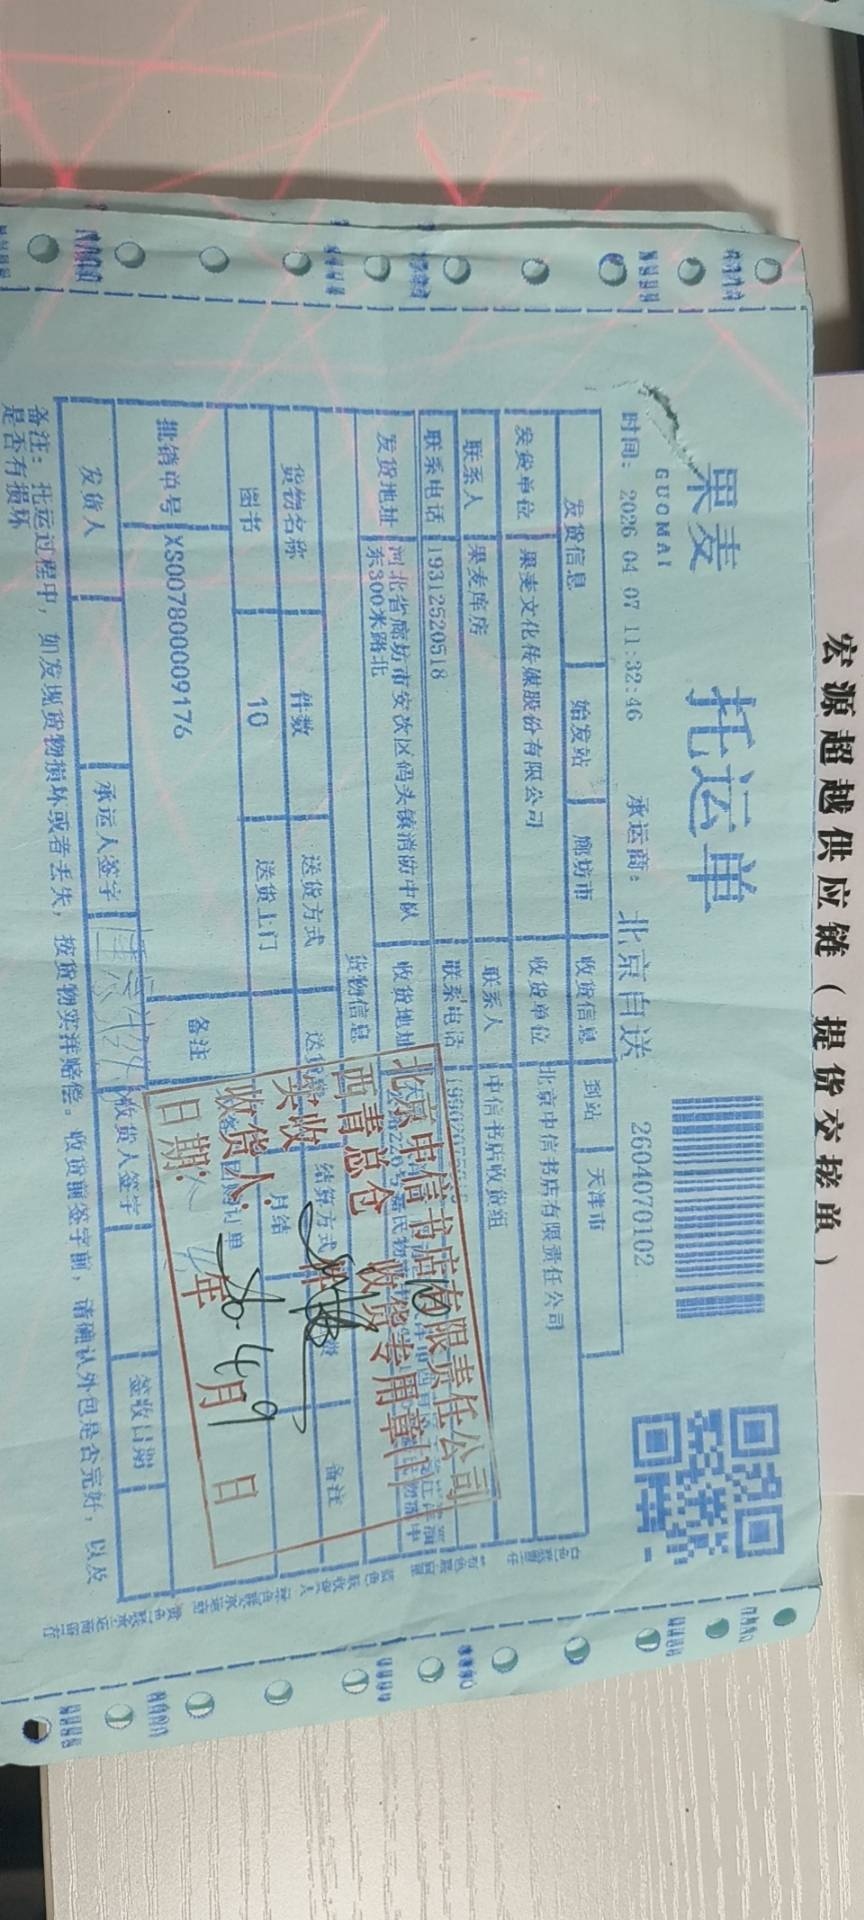 宏源超越供应链（提货交接单）
果麦 托运单
GUOMAI
时间： 2026 04 07 11:32:46 承运商：北京自送 2604070102
发货信息 始发站 廊坊市 收货信息 到站 天津市
发货单位 果麦文化传媒股份有限公司 收货单位 北京中信书店有限责任公司
联系人 果麦库房 联系人 中信书店收货组
联系电话 19312520518 联系电话
发货地址 河北省廊坊市安次区码头镇消防中队东300米路北 收货地址
货物信息
货物名称 件数 送货方式 结算方式 备注
图书 10 送货上门 月结
批销单号 XS007800009176 备注 团购订单
北京中信书店有限责任公司
西青总仓 收货专用章
实收 件
收货人：
日期： 年 4月9日
发货人 承运人签字 收货人签字 签收日期
备注：托运过程中，如发现货物损坏或者丢失，按货物实洋赔偿。收货前签字前，请确认外包是否完好，以及
是否有损坏